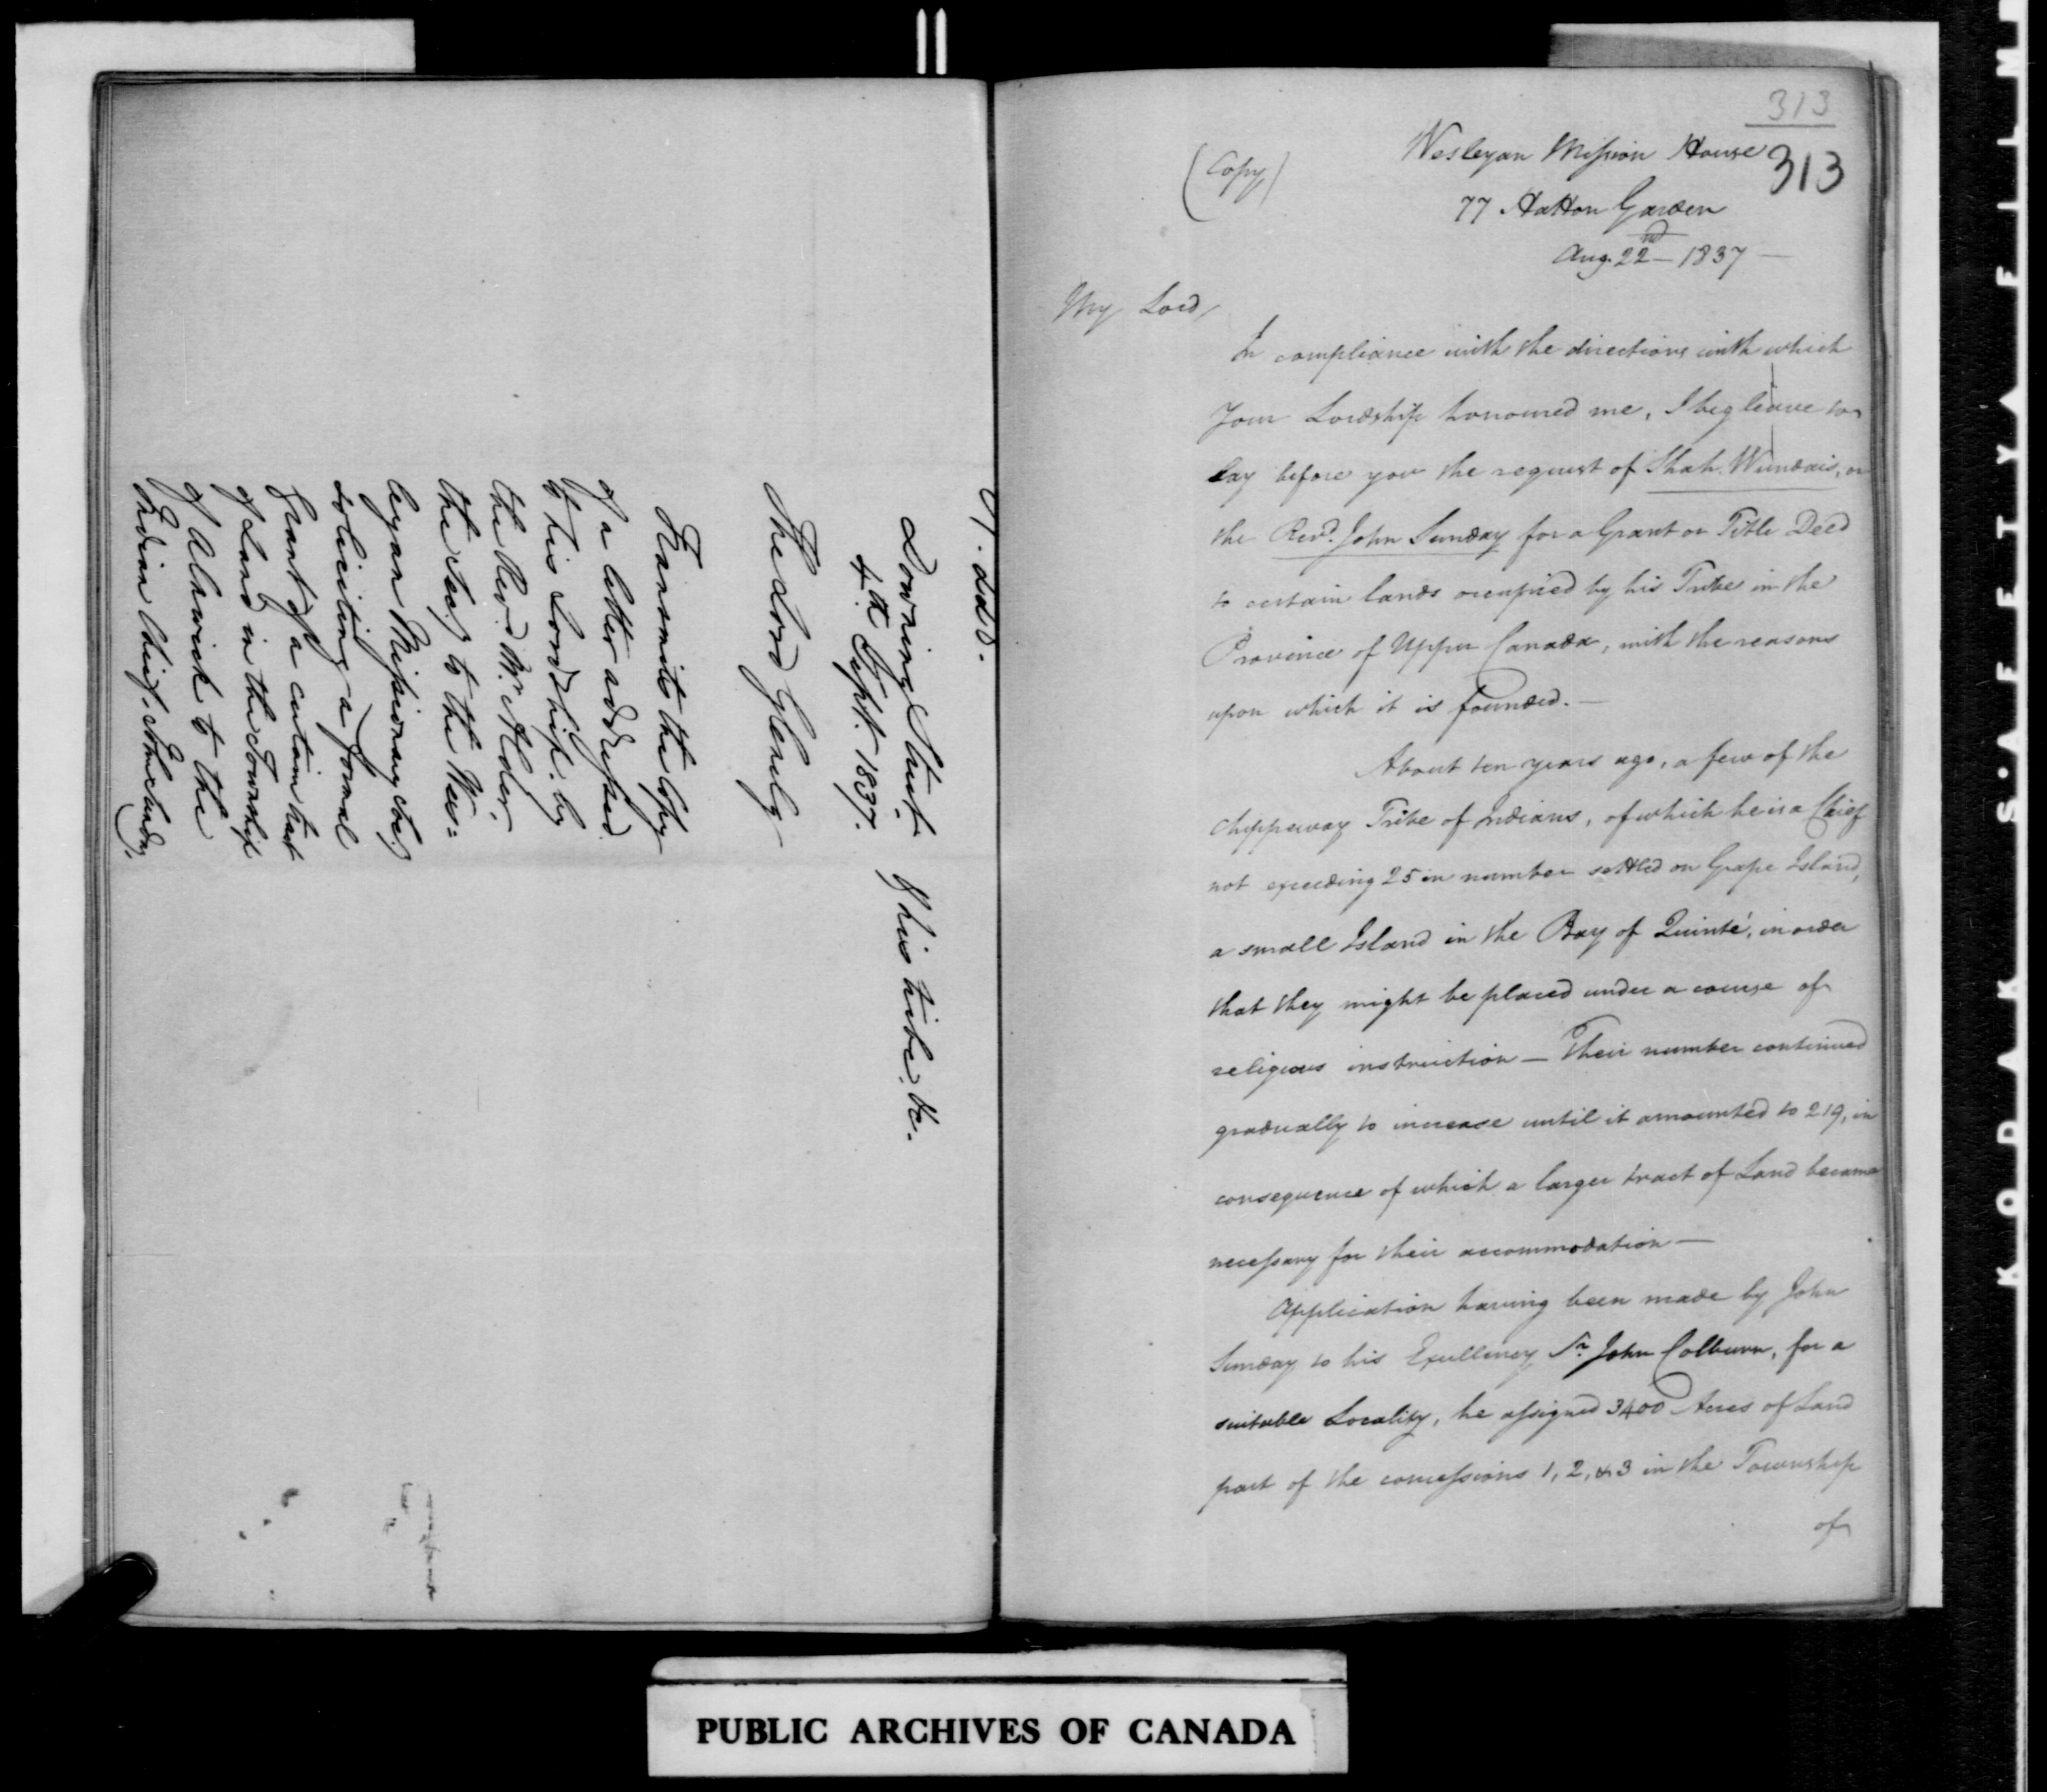 Downing Street
4th Sept. 1837.
The Lord Glenelg
Transmits the Copy
of a letter addressed
to His Lordship by
the Revd. Mr. Alder,
the Secy. to the Wes=
leyan Missionary Socy.
soliciting a formal
grant of a certain tract
of Land in the Township
of Alnwick to the
Indian Chief, John Sunday,
& his tribe, &c.
313
313
(Copy)
Wesleyan Mission House
77 Hatton Garden
Aug. 22nd 1837 —
My Lord,
In compliance with the directions with which
Your Lordship honoured me, I beg leave to
lay before you the request of Shah Wundais, or
the Revd. John Sunday for a Grant or Title Deed
to certain lands occupied by his Tribe in the
Province of Upper Canada, with the reasons
upon which it is founded. —
About ten years ago, a few of the
Chippeway Tribe of Indians, of which he is a Chief
not exceeding 25 in number settled on Grape Island,
a small Island in the Bay of Quinté, in order
that they might be placed under a course of
religious instruction — Their number continued
gradually to increase until it amounted to 219, in
consequence of which a larger tract of Land became
necessary for their accommodation —
Application having been made by John
Sunday to his Excellency Sr. John Colburn, for a
suitable Locality, he assigned 3400 Acres of Land
part of the concessions 1, 2, & 3 in the Township
of
PUBLIC ARCHIVES OF CANADA
KODAK S.A.F.E.T.Y. FILM